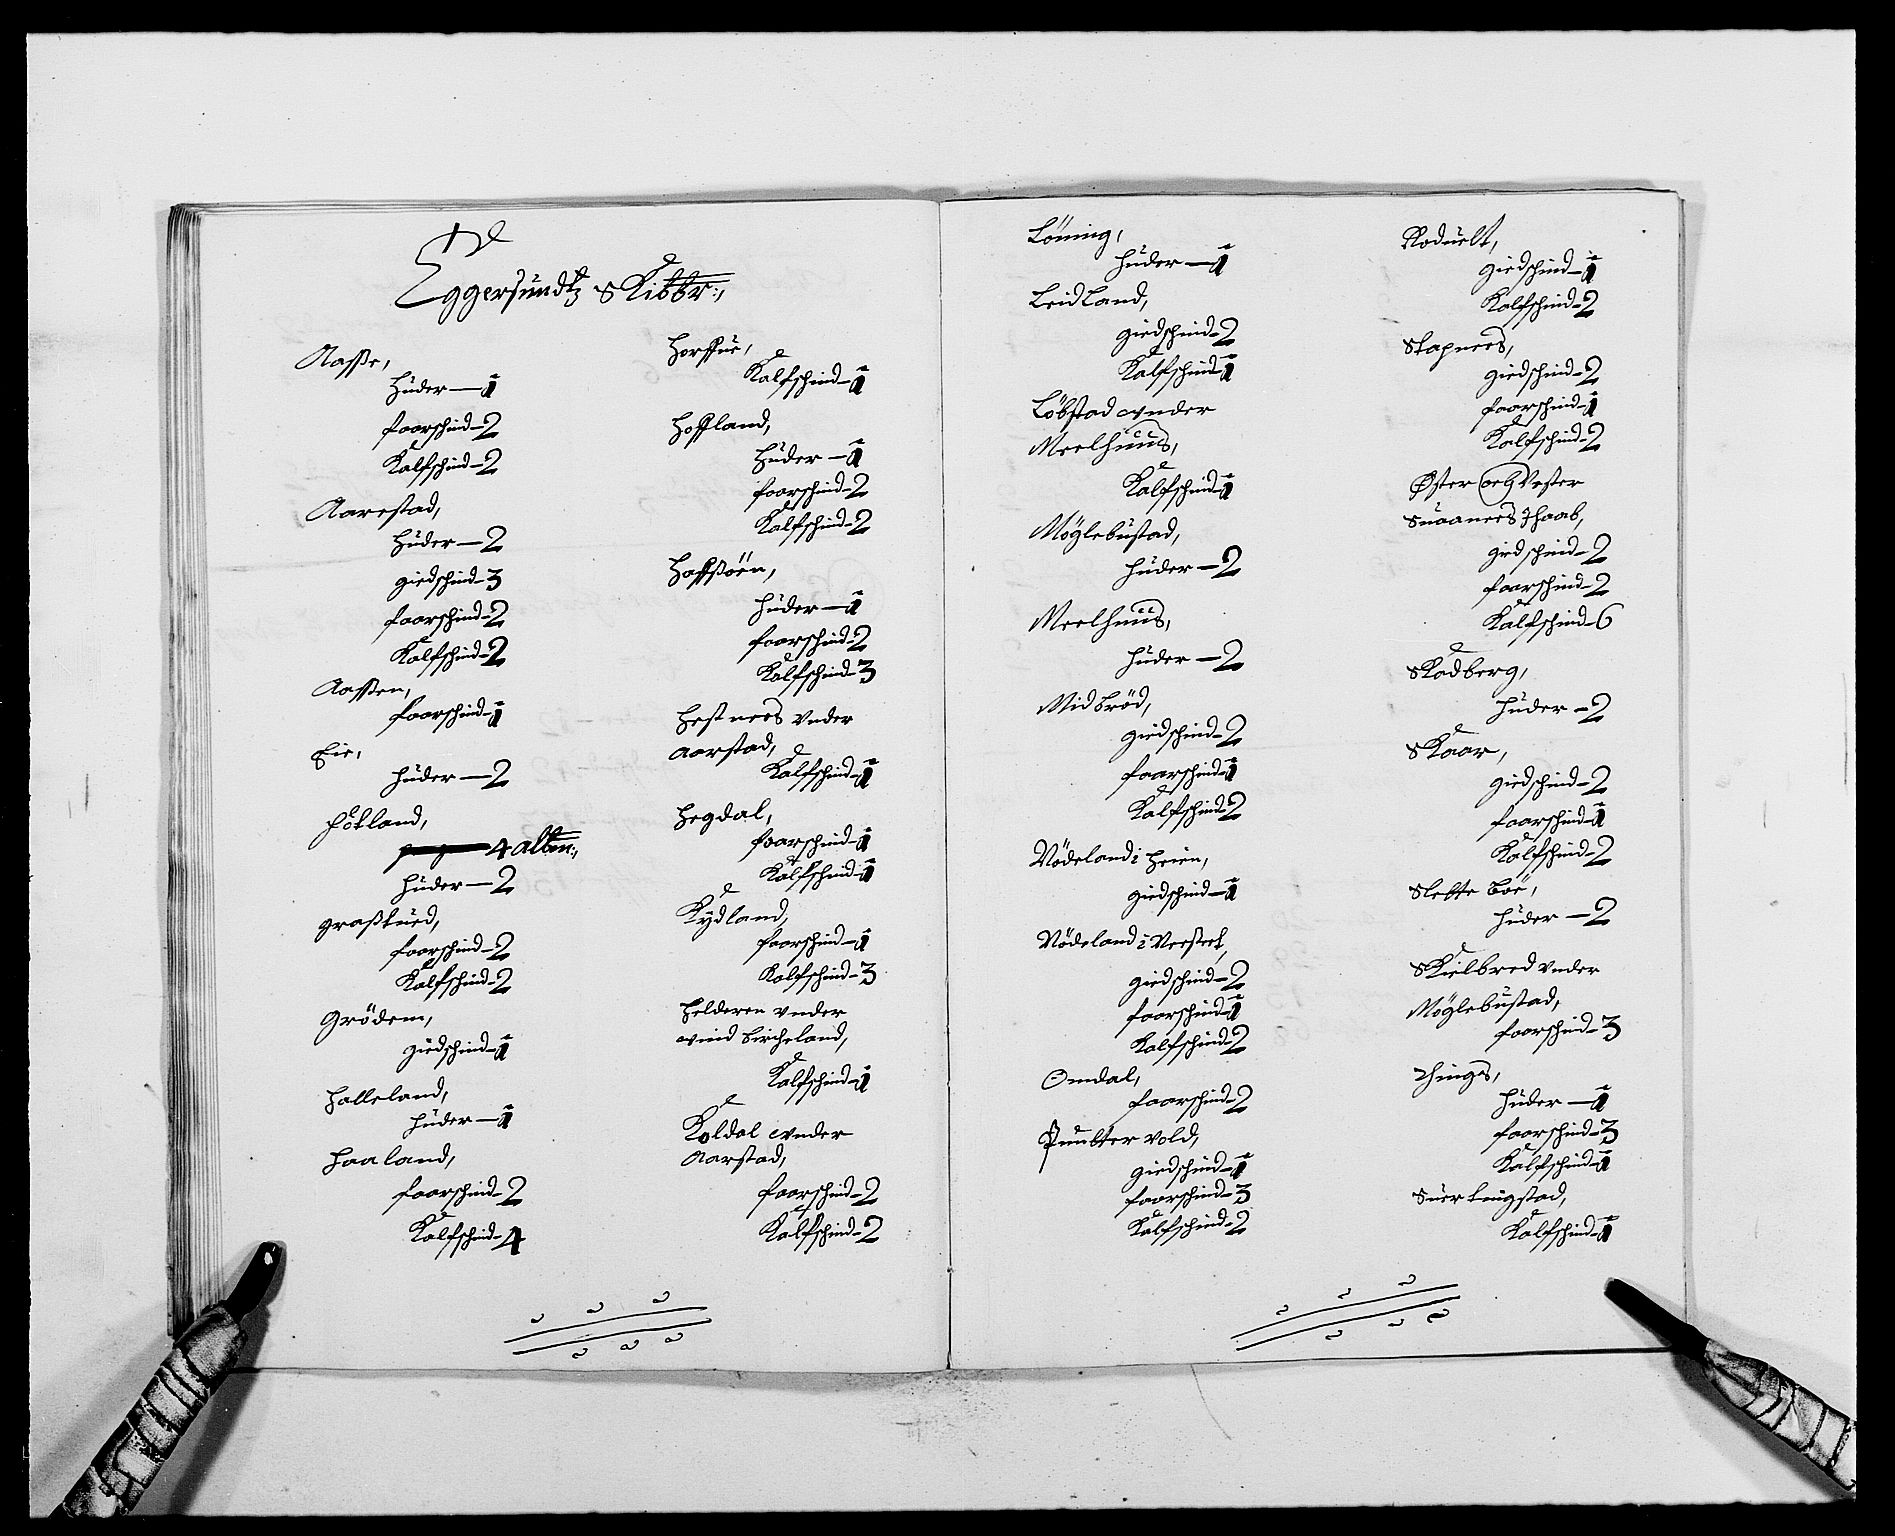 Eggersundtz Skibbr:,
Aasse,
Hüder — 1
faarschind - 2
Kalfschind - 2
Aarestad,
Hüder — 2
giedschind - 3
faarschind - 2
Kalfschind - 2
Aassen,
faarschind - 1
Eie,
hüder — 2
hötland,
4 alten:,
hüder — 2
faarschind - 2
Kalfschind - 2
Grödem,
giedschind - 1
Halleland,
hüder — 1
Haaland,
faarschind - 2
Kalfschind - 4
Kalfschind - 1
Hoffland,
Hüder — 1
faarschind - 2
Kalfschind - 2
hüder — 1
faarschind - 2
Kalfschind - 3
Hestnees vnder
Aarstad,
Kalfschind - 1
Hegdal,
faarschind - 1
Kalfschind - 1
Kydland,
faarschind - 1
Kalfschind - 3
Helderen vnder
Kalfschind - 1
Koldal vnder
Aarstad,
faarschind - 2
Kalfschind - 2
Löning,
hüder — 1
Leidland,
giedschind - 2
Kalfschind - 1
Löbstad vnder
Meelhuus,
Kalfschind - 1
Möglebüstad,
hüder — 2
Meelhuus,
hüder — 2
Midbröd,
giedschind - 2
faarschind - 1
Kalfschind - 2
Nödeland i heien,
giedschind - 1
Nödeland i
giedschind - 2
faarschind - 1
Kalfschind - 2
Omdal,
faarschind - 2
giedschind - 1
faarschind - 3
Kalfschind - 2
Roduelt,
giedschind - 1
Kalfschind - 2
Skapnees,
giedschind - 2
faarschind - 1
Kalfschind - 2
Øster och Vester
giedschind - 2
faarschind - 2
Kalfschind - 6
Skadberg,
hüder — 2
Skaar,
giedschind - 2
faarschind - 1
Kalfschind - 2
Slettebøe,
hüder — 2
Skielbred vnder
Möglebüstad,
faarschind - 3
Things,
hüder — 1
faarschind - 3
Kalfschind - 1
Kalfschind - 1